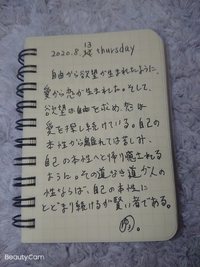 2020.8.13 thursday
自由から欲望が生まれたように、
愛から恋が生まれた。そして、
欲望は自由を求め、恋は
愛を探し続けている。自己の
本性から離れては苦しみ、
自己の本性へと帰り癒される
ように。その道なき道が人の
性ならば、自己の本性に
とどまり続けるが賢い者である。
BeautyCam